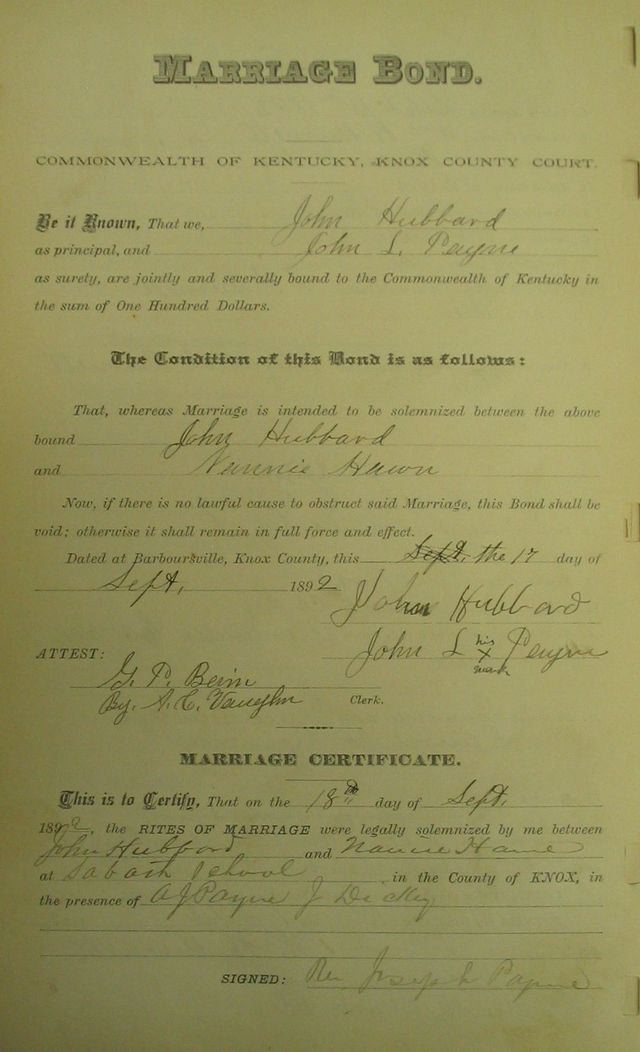 MARRIAGE BOND.
COMMONWEALTH OF KENTUCKY, KNOX COUNTY COURT.
Be it Known, That we, John Hubbard
as principal, and John L. Payne
as surety, are jointly and severally bound to the Commonwealth of Kentucky in
the sum of One Hundred Dollars.
The Condition of this Bond is as follows:
That, whereas Marriage is intended to be solemnized between the above
bound John Hubbard
and Nannie Hawn
Now, if there is no lawful cause to obstruct said Marriage, this Bond shall be
void; otherwise it shall remain in full force and effect.
Dated at Barboursville, Knox County, this Sept, the 17 day of
Sept, 1892
John Hubbard
his
ATTEST: John L X Payne
mark
G. P. 
By. A. C. Vaughn Clerk.
MARRIAGE CERTIFICATE.
This is to Certify, That on the 18th day of Sept.
1892, the RITES OF MARRIAGE were legally solemnized by me between
John Hubbard and Nannie
at School in the County of KNOX, in
the presence of A J Payne J Dickey
SIGNED: Rev Joseph Payne